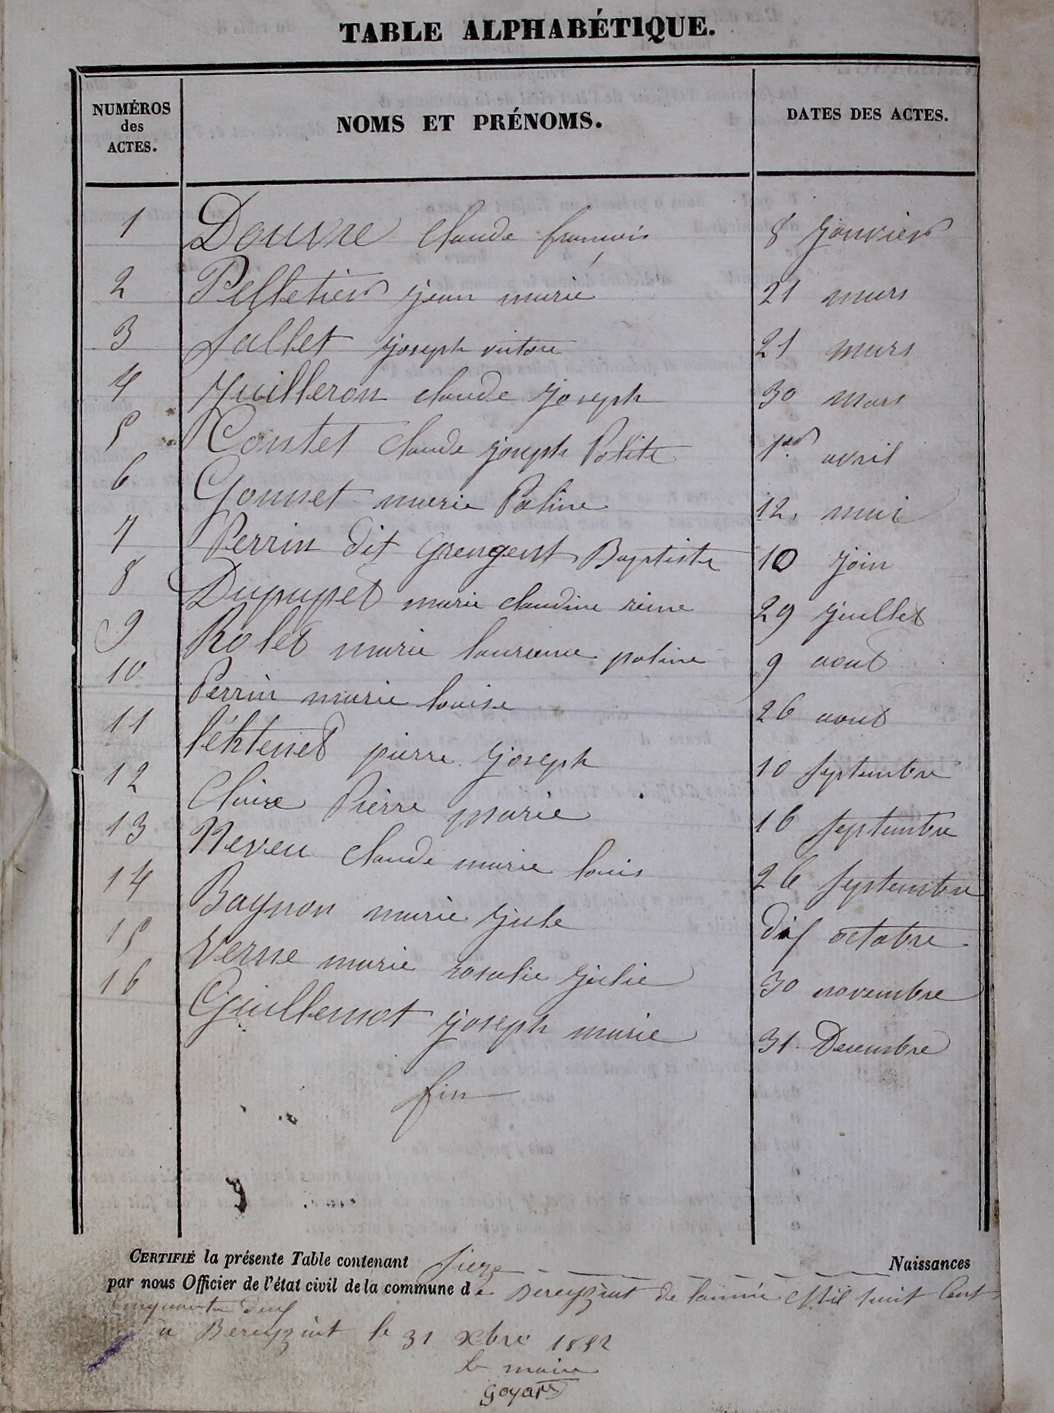 TABLE ALPHABÉTIQUE.
NUMÉROS des ACTES. NOMS ET PRÉNOMS. DATES DES ACTES.
1 Douvre claude françois 8 janvier
2 Pelletier jean marie 21 mars
3 Sallet joseph victore 21 mars
4 Juilleron claude joseph 30 mars
5 Contet claude joseph Polite 1er avril
6 Gonnet marie Poline 12 mai
7 Perrin dit grengent Baptiste 10 join
8 Dupupet marie claudine reine 29 juillet
9 Rolet marie laurence poline 9 aout
10 Perrin marie louise 26 aout
11 pierre joseph 10 septembre
12 Claire Pierre marie 16 septembre
13 Neveu claude marie louis 26 septembre
14 Bagnon marie jule dix octobre
15 Verne marie rosalie julie 30 novembre
16 Guillemot joseph marie 31 Decembre
fin
CERTIFIÉ la présente Table contenant sieze Naissances
par nous Officier de l'état civil de la commune de Bereyziat de l'année Mil huit Cent
Cinquante deux
a Bereyziat le 31 xbre 1852
le maire
Goyard